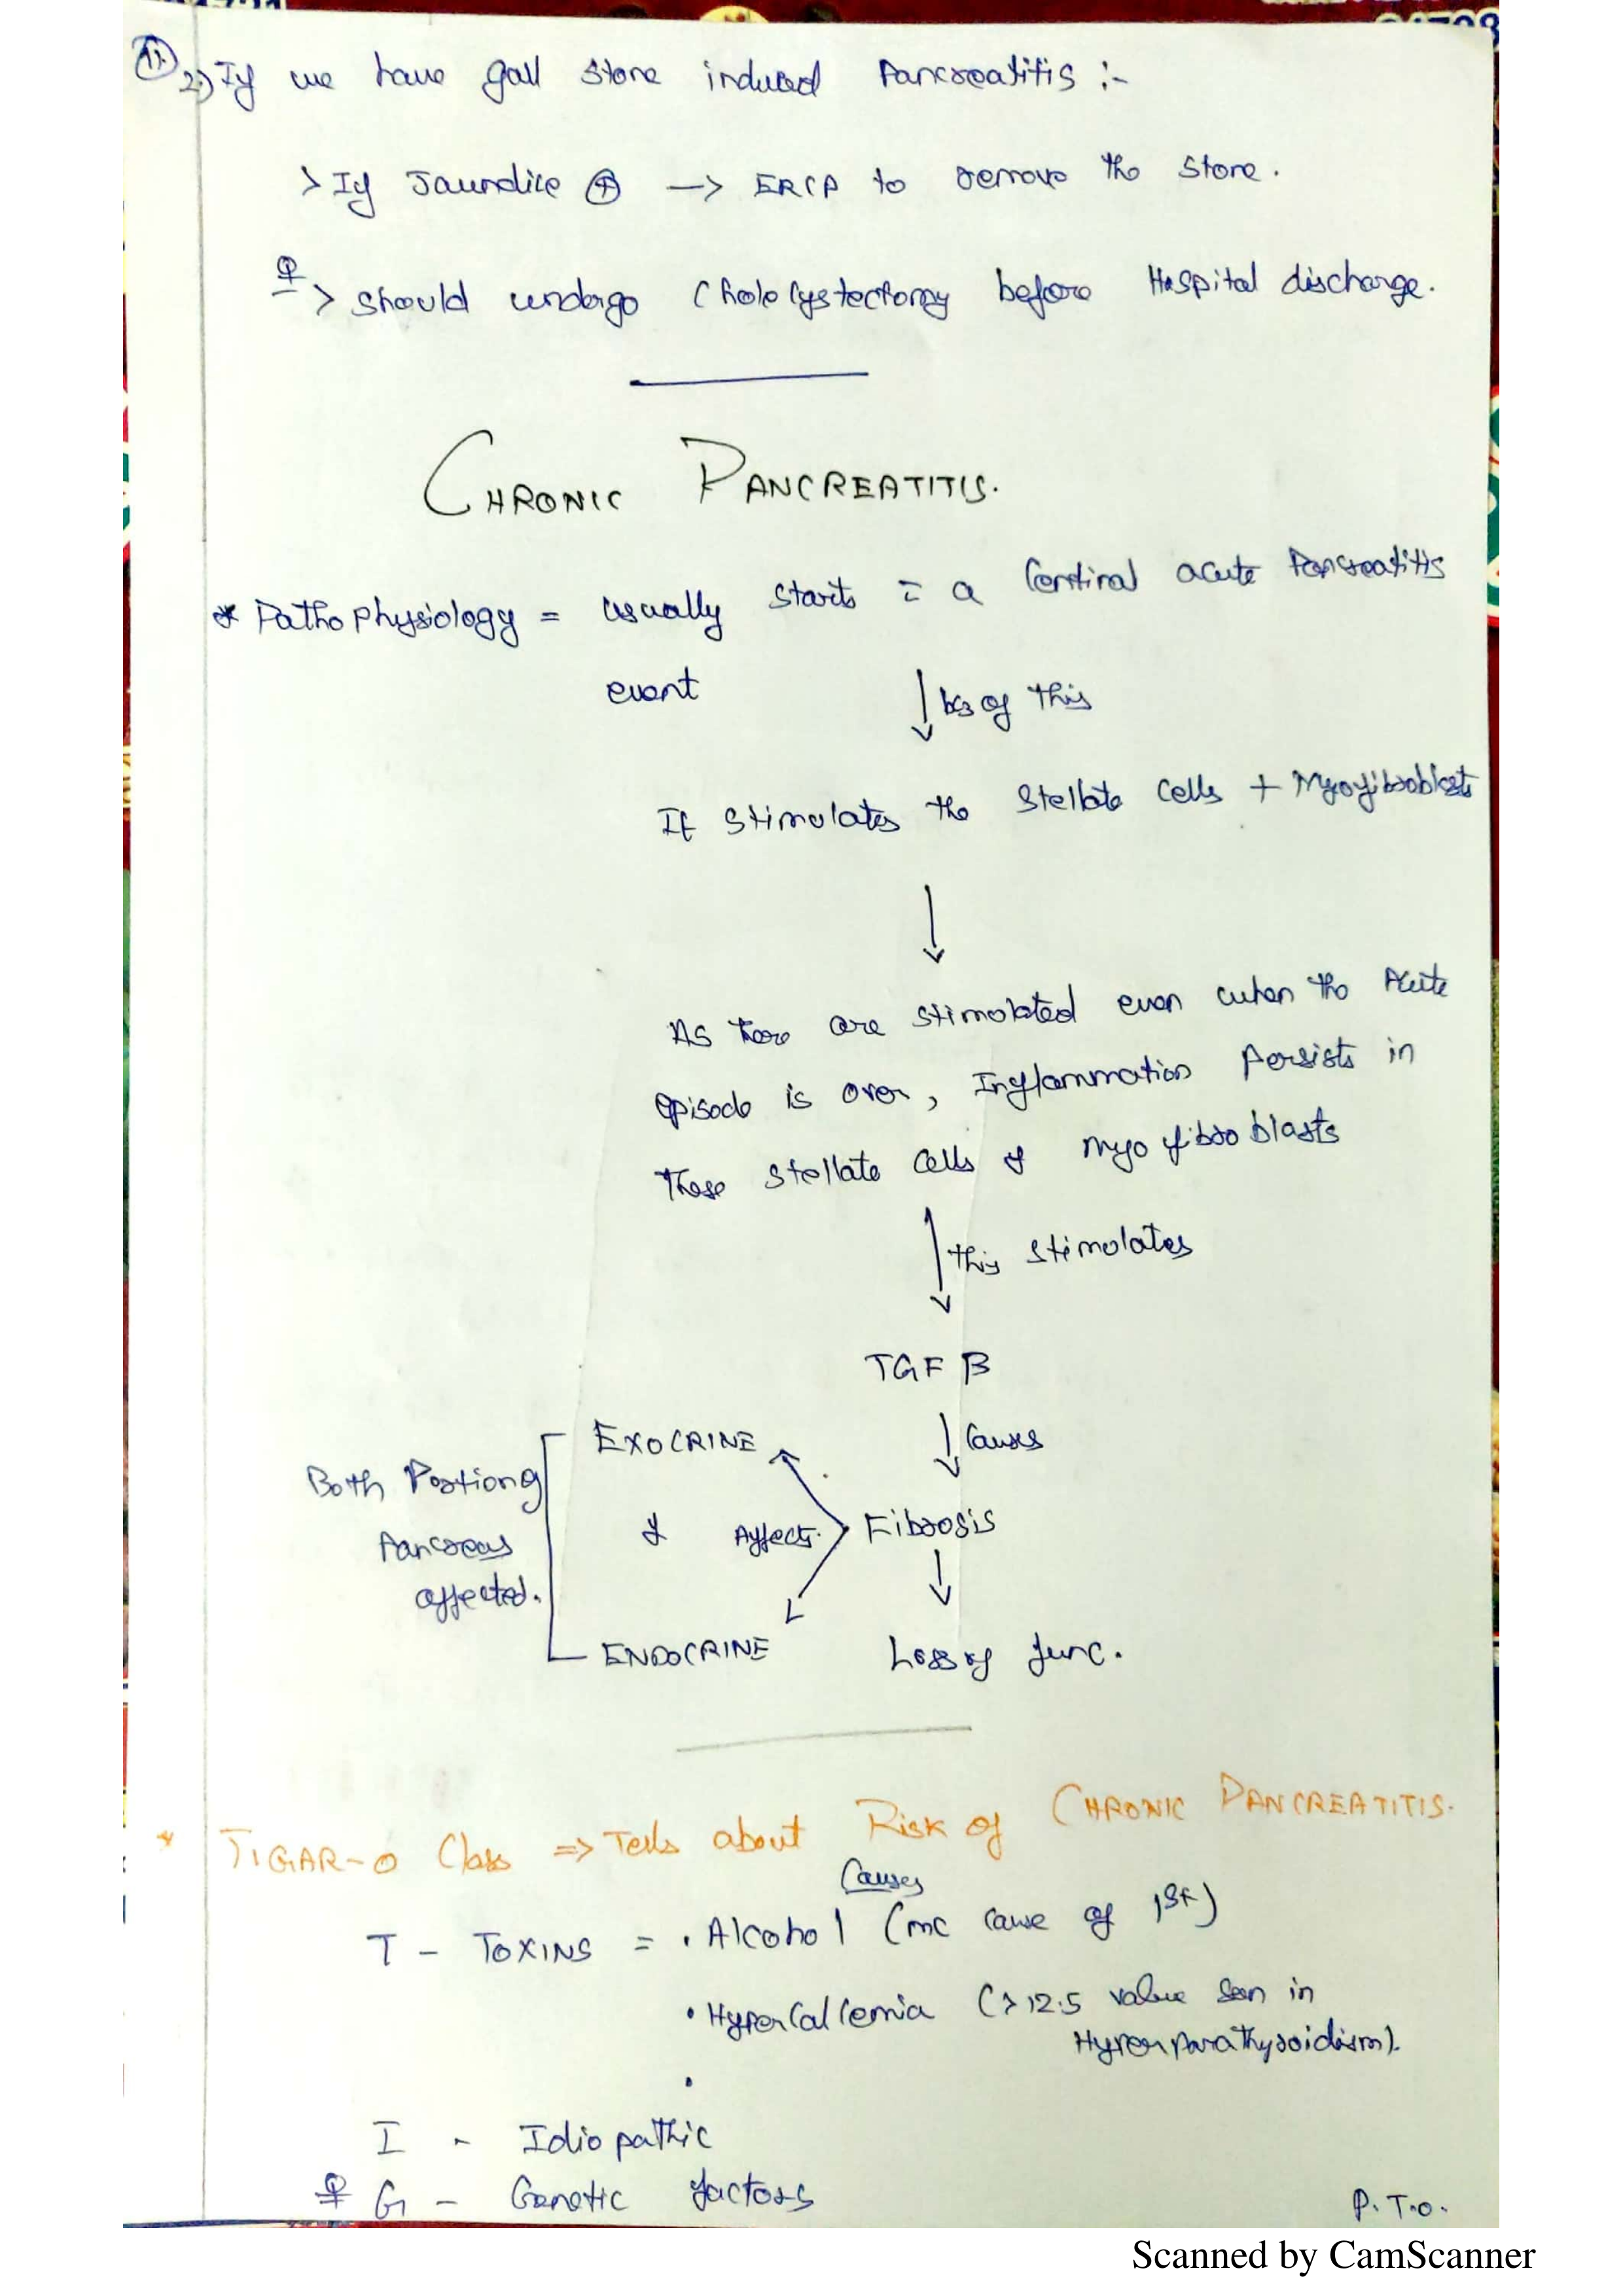 11.
2.) If we have gall stone induced Pancreatitis :-
> If Jaundice ⊕ -> ERCP to remove the stone.
> should undergo Cholecystectomy before Hospital discharge.
CHRONIC PANCREATITIS.
* Pathophysiology = usually starts c̄ a Sentinal acute Pancreatitis
event
↓ bcz of this
It stimulates the Stellate cells + Myofibroblasts
↓
As these are stimulated even when the Acute
episode is over, Inflammation persists in
These stellate cells & myofibroblasts
↓ this stimulates
TGF β
↓ Causes
EXOCRINE
Both Portion of
Pancreas
affected.
& Affects. Fibrosis
↓
ENDOCRINE Loss of func.
* TIGAR-O Class => Tells about Risk of CHRONIC PANCREATITIS.
Causes
T - TOXINS = • Alcohol (mc cause of 1st)
• Hypercalcemia (>12.5 value seen in
Hyperparathyroidism).
•
I - Idiopathic
G - Genetic factors
P.T.O.
Scanned by CamScanner